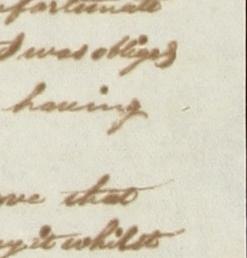 nfortunate
I was obliged
having
ove that
ey it whilst